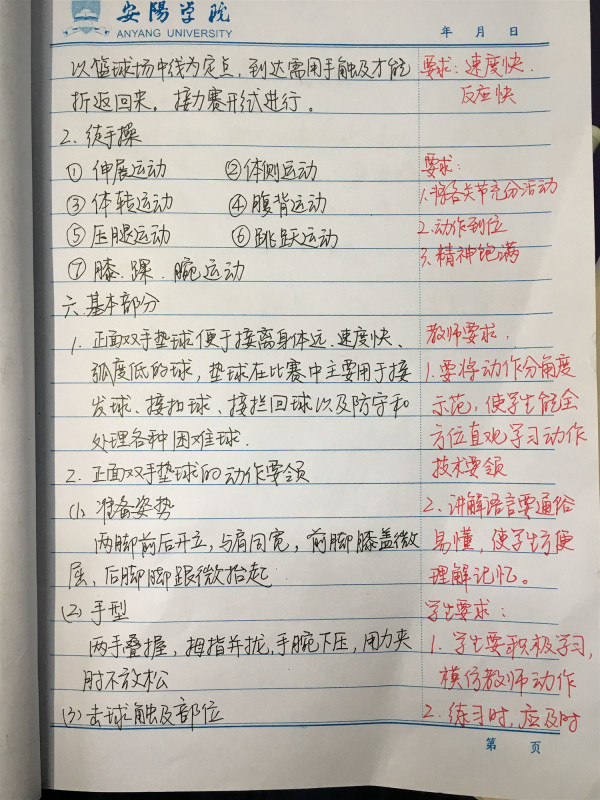 安陽学院
ANYANG UNIVERSITY
年 月 日
以篮球场中线为定点，到达需用手触及才能
折返回来，接力赛形式进行。
2. 徒手操
① 伸展运动 ② 体侧运动
③ 体转运动 ④ 腹背运动
⑤ 压腿运动 ⑥ 跳跃运动
⑦ 膝.踝.腕运动
六.基本部分
1. 正面双手垫球便于接离身体远.速度快、
弧度低的球，垫球在比赛中主要用于接
发球、接扣球、接拦回球以及防守和
处理各种困难球.
2. 正面双手垫球的动作要领
(1). 准备姿势
两脚前后开立，与肩同宽，前脚膝盖微
屈，后脚脚跟微抬起
(2) 手型
两手叠握，拇指并拢，手腕下压，用力夹
肘不放松
(3) 击球触及部位
要求：速度快.
反应快
要求：
1.将各关节充分活动
2.动作到位
3.精神饱满
教师要求.
1.要将动作分角度
示范，使学生能全
方位直观学习动作
技术要领
2. 讲解语言要通俗
易懂，使学生方便
理解记忆。
学生要求：
1. 学生要积极学习，
模仿教师动作
2. 练习时，应及时
第 页